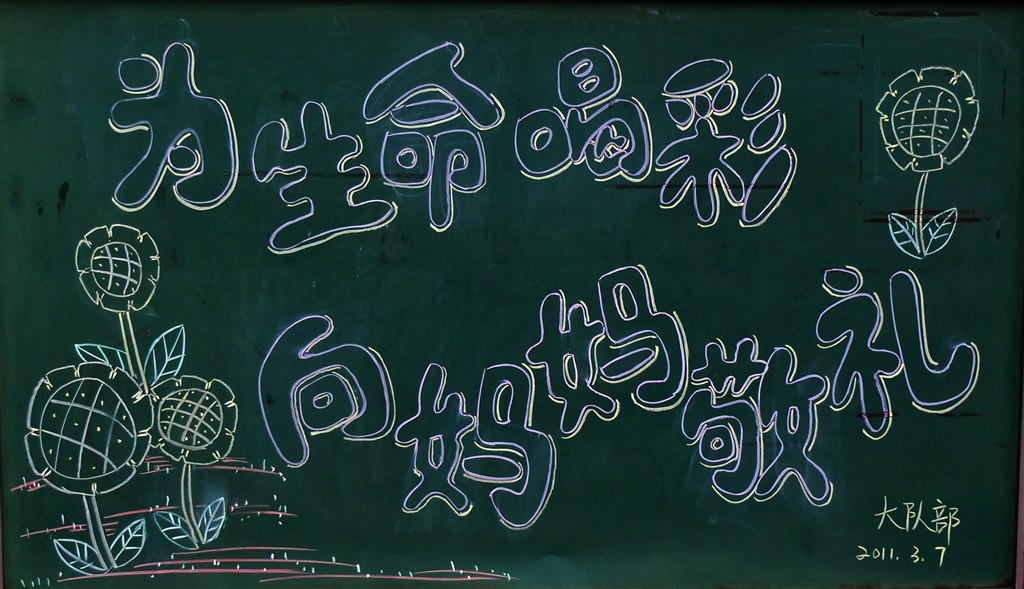 为生命喝彩
向妈妈敬礼
大队部
2011.3.7